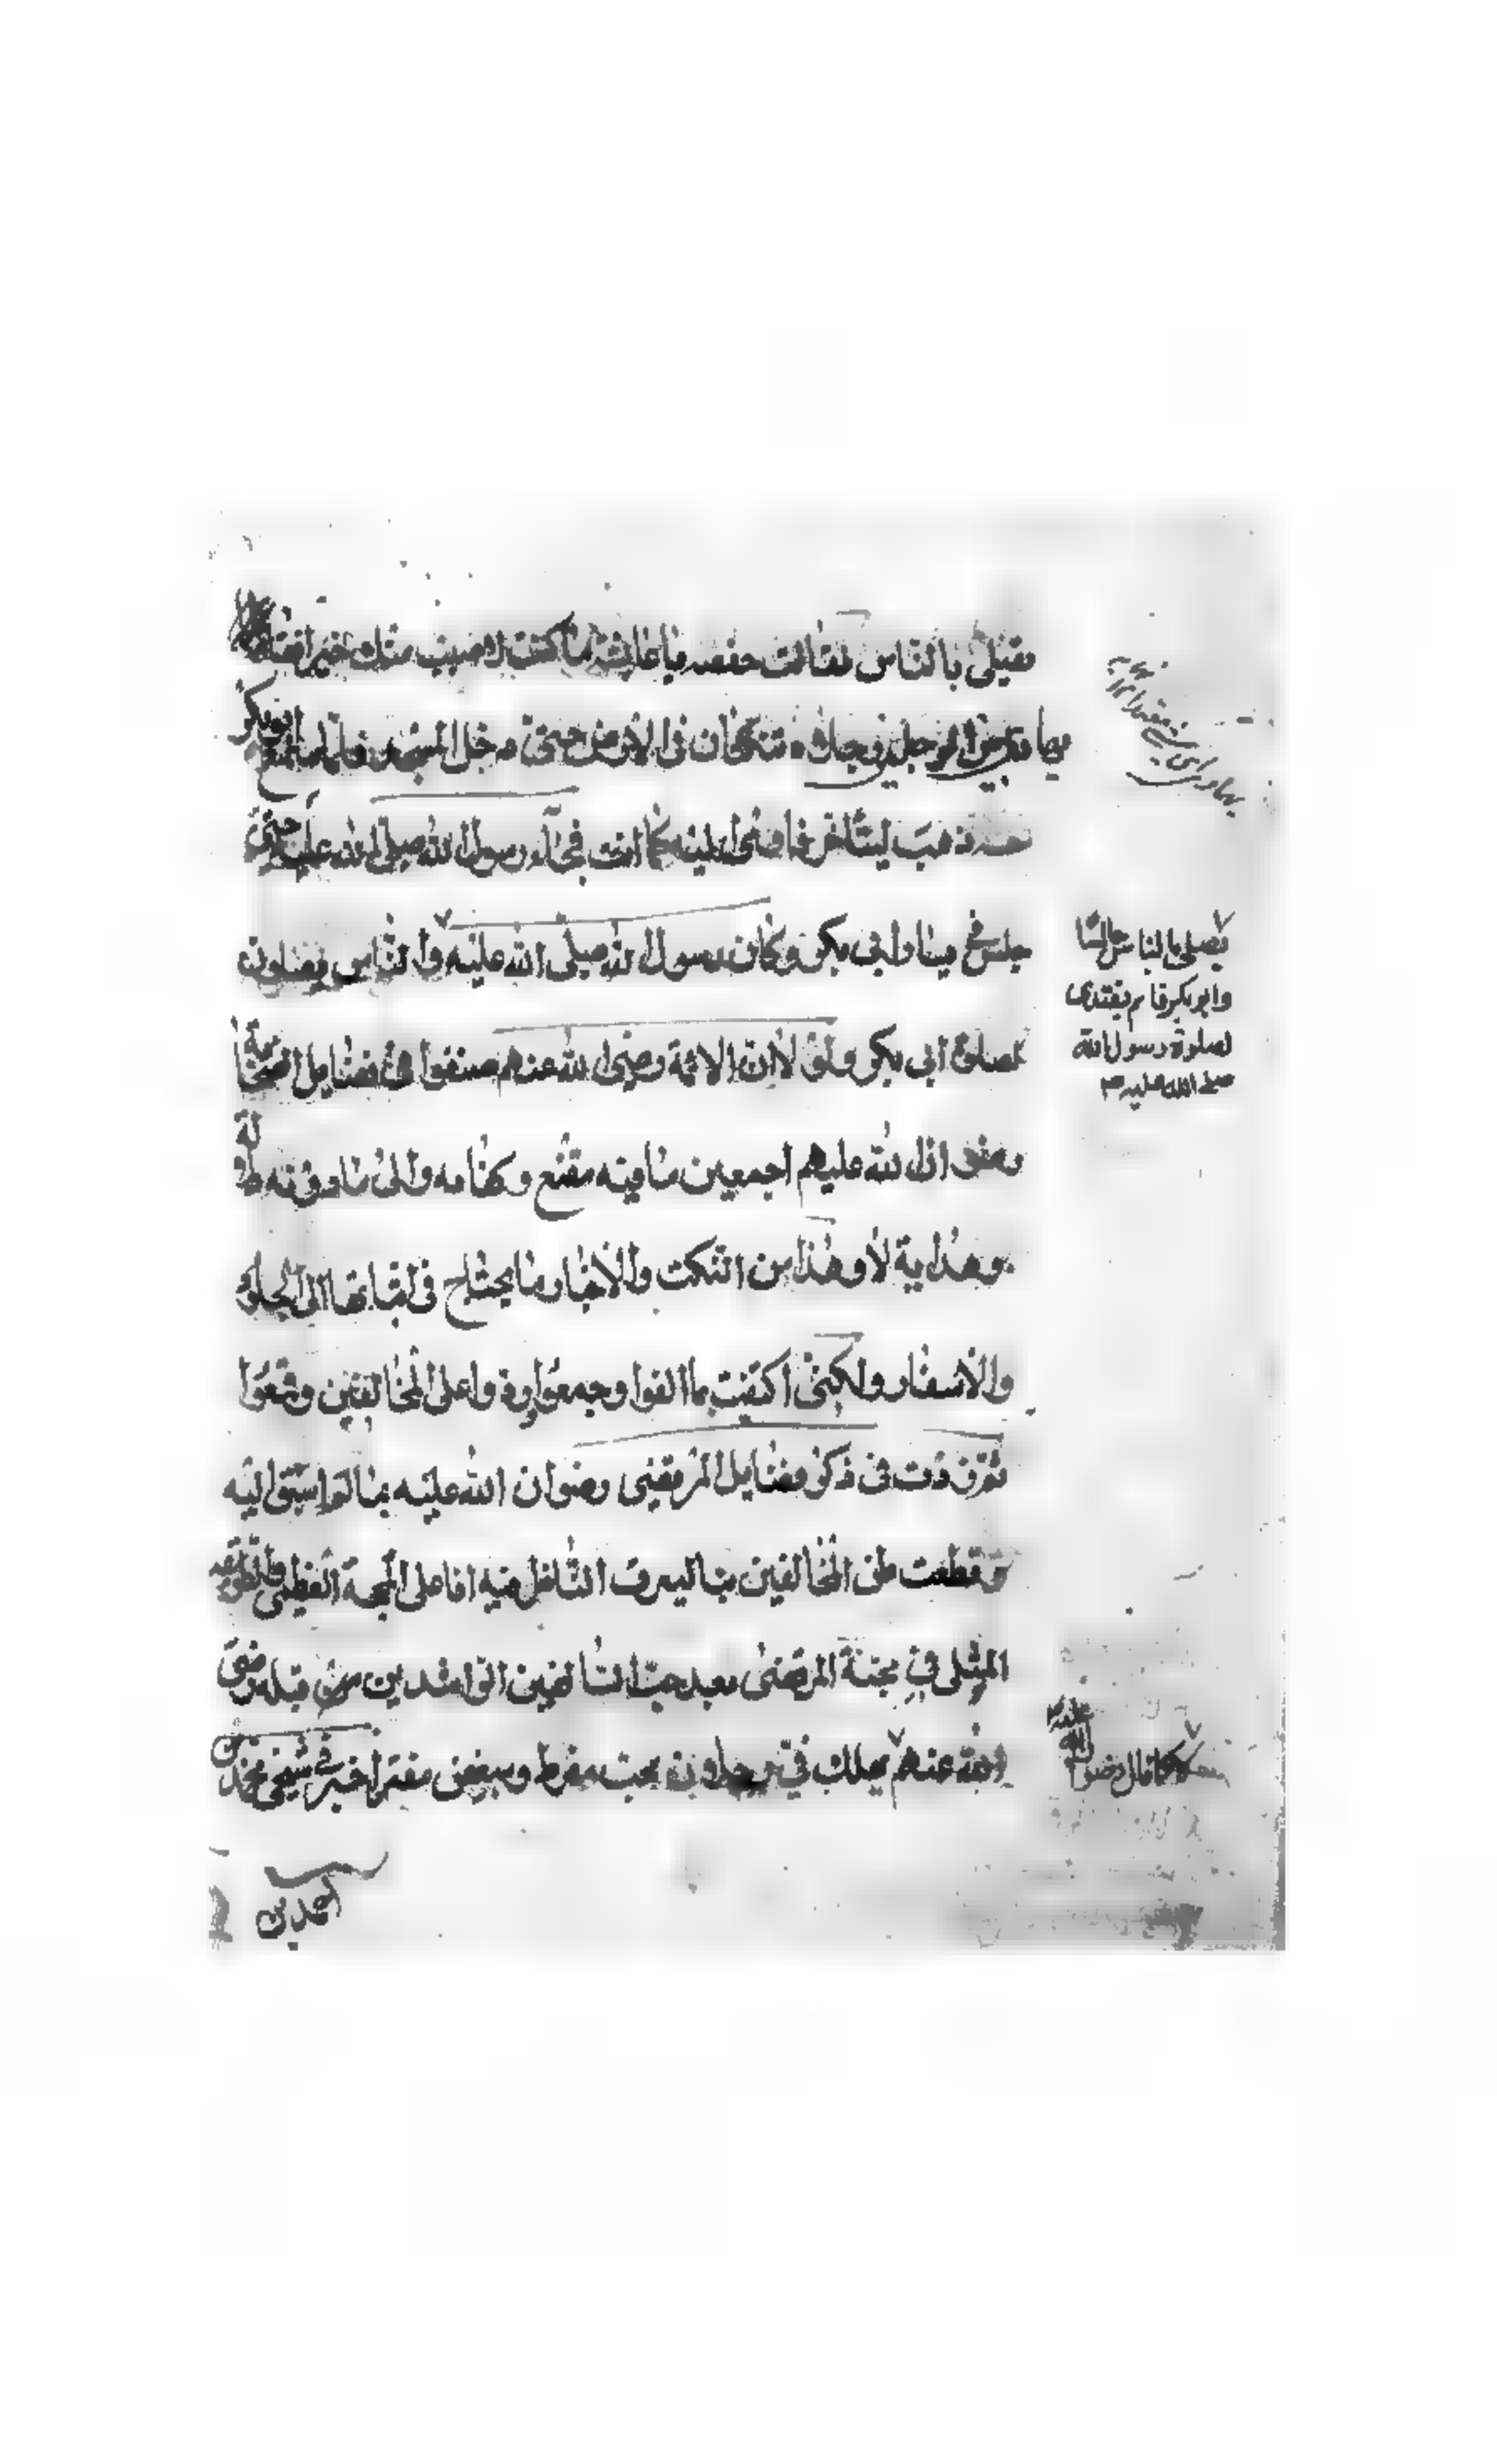 فيصلى بالناس فقالت حفصه يا عايشة ما كنت لاصيب منك خيرا
بها بين الرجلين و رجلاه تنكتان فى الارض حتى دخل المسجد فلما سمع ابو بكر
حسه ذهب ليتأخر فاومى اليه كما انت فجآء رسول الله صلى الله عليه حتى
جلس عن يسار ابى بكر وكان رسول الله صلى الله عليه والناس يصلون
بصلوة ابى بكر ولولا ان الائمة رضى الله عنهم صنفوا فى فضايل الصحابة
رضوان الله عليهم اجمعين ما فيه مقنع وكفايه ولى ما دونه
وهداية لاوردنا من النكت والاخبار ما يحتاج فى اثباتها الى الجلود
والاسفار ولكنى اكتفيت بما الفوا وجمعوا ردا على المخالفين
ثم زدت فى ذكر فضايل المرتضى رضوان الله عليه بما لم اسبق اليه
وقطعت طن المخالفين بما ليعرف الناظر فيه انا على المحجة العظمى والطريقه
المثلى فى محبة المرتضى بعد حبنا السالفين الراشدين من قبله رضى
الله عنهم يهلك فى رجلان محب مفرط ومبغض مفتر اخبرنى شيخى محمد بن
احمد بن
يصلى بالناس جالسا
وابو بكر قايم يقتدى
بصلوة رسول الله
صلى الله عليه
كما قال رضوان الله عليه